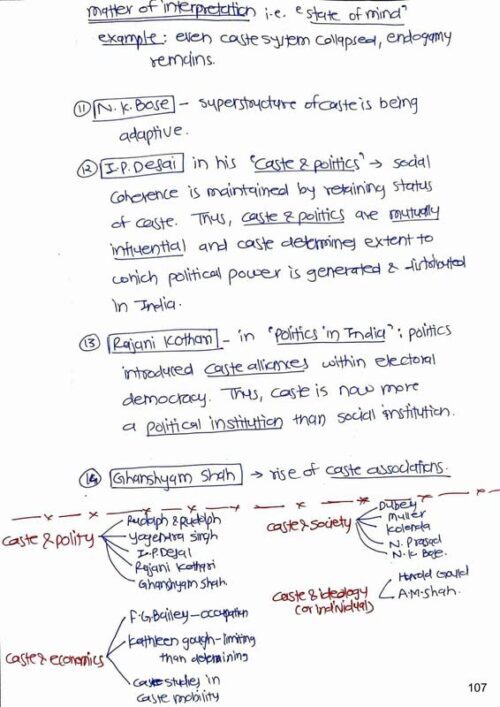 matter of interpretation i.e. "state of mind"
example: even caste system collapsed, endogamy
remains.
11 N.K. Bose – superstructure of caste is being
adaptive.
12 I.P. Desai in his "Caste & politics" → social
coherence is maintained by retaining status
of caste. Thus, caste & politics are mutually
influential and caste determines extent to
which political power is generated & distributed
in India.
13 Rajani Kothari – in "Politics in India": politics
introduced caste alliances within electoral
democracy. Thus, caste is now more
a political institution than social institution.
14 Ghanshyam Shah → rise of caste associations.
Caste & polity
Rudolph & Rudolph
Yogendra Singh
I.P. Desai
Rajani Kothari
Ghanshyam Shah.
Caste & society
Dubey
Muller
Kolenda
N. Prasad
N.K. Bose.
Caste & ideology
(or individual)
Harold Gould
A.M. Shah.
Caste & economics
F.G. Bailey – occupation
Kathleen gough – limiting
than determining
Case studies in
caste mobility
107